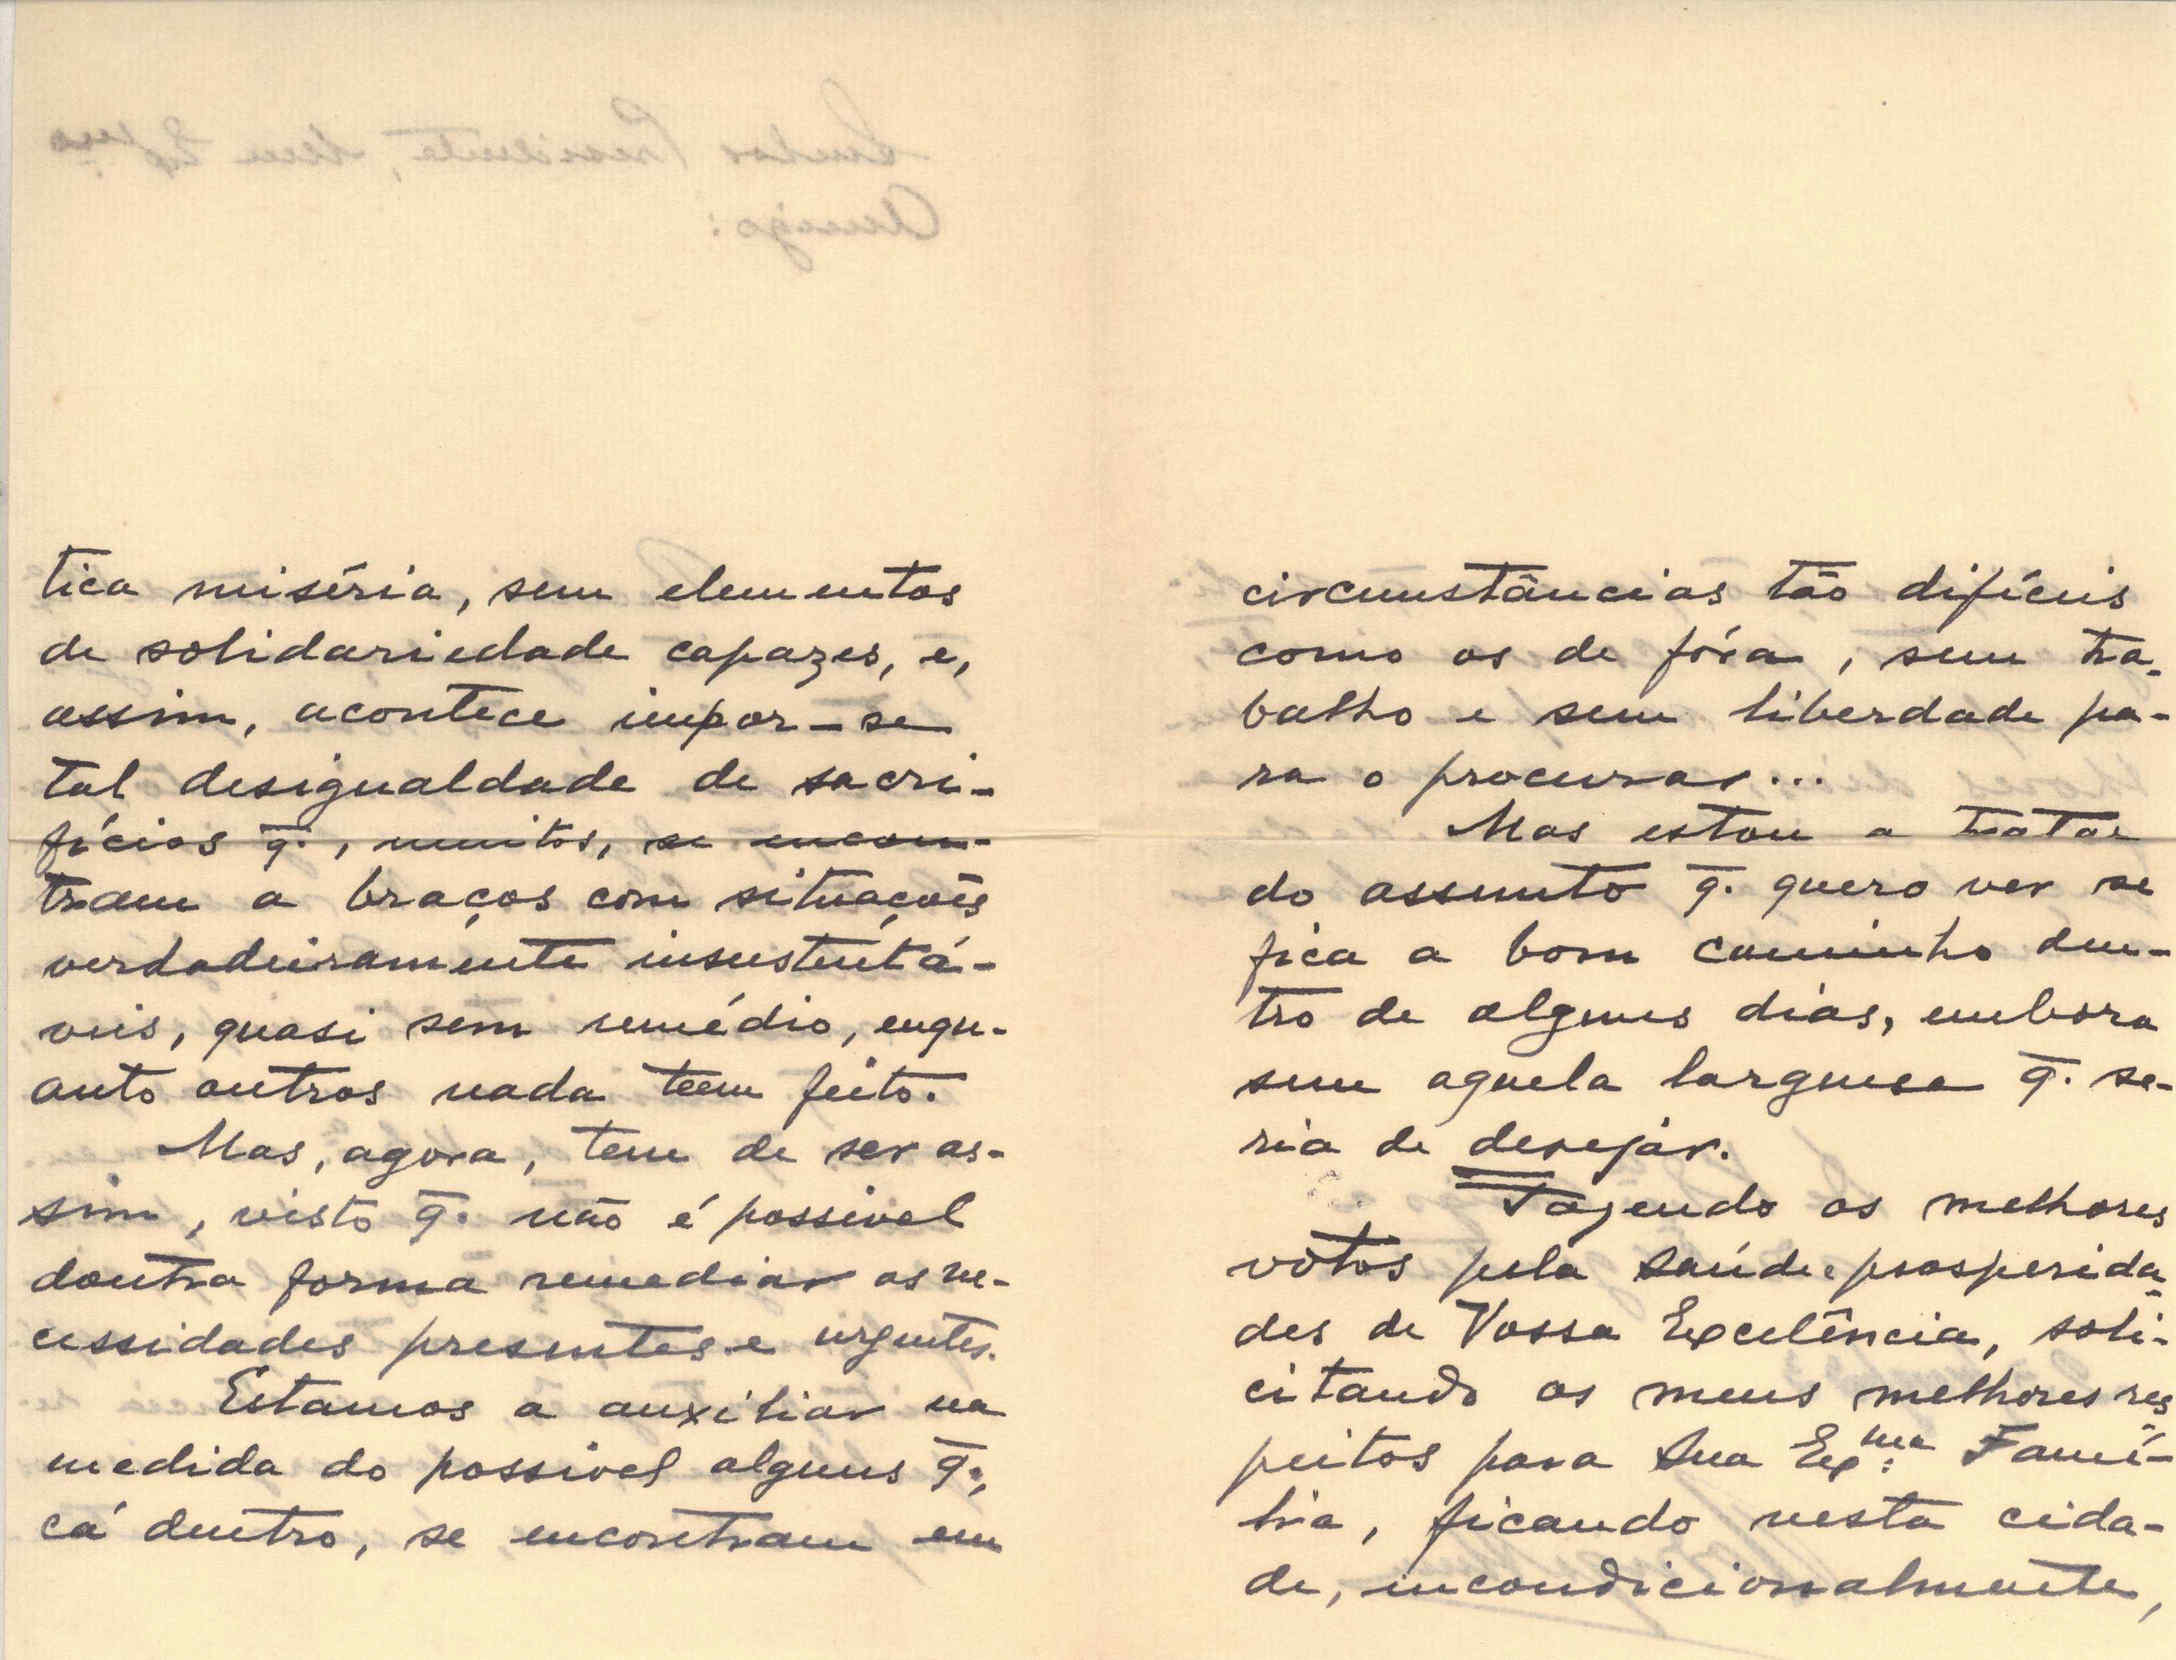 tica miséria, sem elementos
de solidariedade capazes, e,
assim, acontece impor-se
tal desigualdade de sacri-
fícios q., muitos, se encon-
tram a braços com situações
verdadeiramente insustentá-
veis, quasi sem remédio, enqu-
anto outros nada teem feito.
Mas, agora, tem de ser as-
sim, visto q. não é possivel
doutra forma remediar as ne-
cessidades presentes e urgentes.
Estamos a auxiliar na
medida do possivel alguns q.,
cá dentro, se encontram em
circunstâncias tão difíceis
como os de fóra, sem tra-
balho e sem liberdade pa-
ra o procurar...
Mas estou a tratar
do assunto q. quero ver se
fica a bom caminho den-
tro de alguns dias, embora
sem aquela larguesa q. se-
ria de desejar.
Fazendo os melhores
votos pela saúde e prosperida-
des de Vossa Excelência, soli-
citando os meus melhores res-
peitos para Sua Ex.ma Famí-
lia, ficando nesta cida-
de, incondicionalmente,